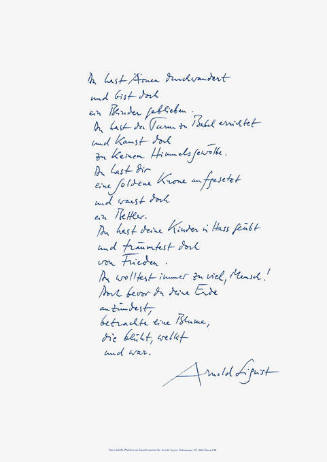 Du hast Äonen durchwandert
und bist doch
ein Blinder geblieben.
Du hast den Turm zu Babel errichtet
und kamst doch
zu keinem Himmelsgewölbe.
Du hast dir
eine goldene Krone aufgesetzt
und warst doch
ein Bettler.
Du hast deine Kinder in Hass geübt
und träumtest doch
von Frieden.
Du wolltest immer zu viel, Mensch!
Doch bevor du deine Erde
anzündest,
betrachte eine Blume,
die blüht, welkt
und war.
Arnold Sigrist